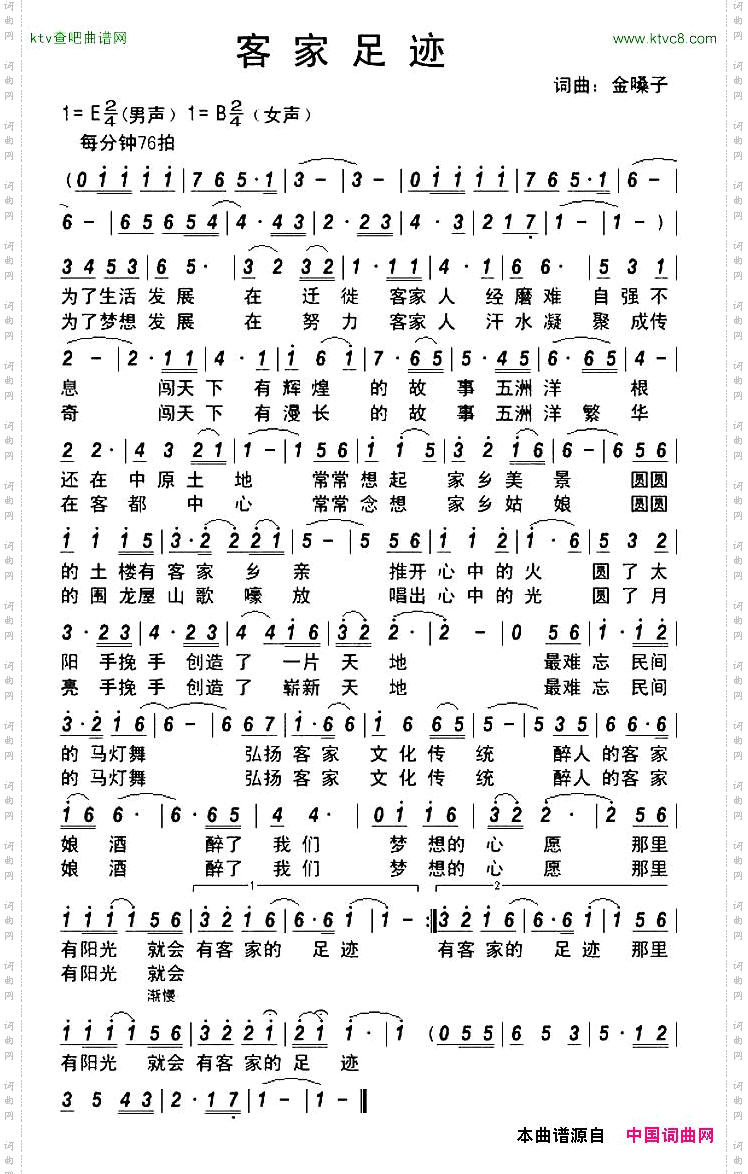 ktv查吧曲谱网
www.ktvc8.com
客家足迹
词曲：金嗓子
1=E2/4(男声) 1=B2/4（女声）
每分钟76拍
(0 1 1 1 1 | 7 6 5·1 | 3 - | 3 - | 0 1 1 1 1 | 7 6 5·1 | 6 - |
6 - | 6 5 6 5 4 | 4·4 3 | 2·2 3 | 4·3 | 2 1 7 | 1 - | 1 - )
3 4 5 3 | 6 5· | 3 2 3 2 | 1·1 1 | 4·1 | 6 6· | 5 3 1
为了生活发展 在 迁徙 客家人 经磨难 自强不
为了梦想发展 在 努力 客家人 汗水凝聚成传
2 - | 2·1 1 | 4·1 | 1 6 1 | 7·6 5 | 5·4 5 | 6·6 5 | 4 -
息 闯天下有辉煌的故事五洲洋 根
奇 闯天下有漫长的故事五洲洋繁华
2 2· | 4 3 2 1 | 1 - | 1 5 6 | 1 1 5 | 3 2 1 6 | 6· | 6 5 6
还在中原土地 常常想起 家乡美景 圆圆
在客都 中心 常常念想 家乡姑娘 圆圆
1 1 1 5 | 3·2 2 2 1 | 5 - | 5 5 6 | 1 1 2 | 1·6 | 5 3 2
的土楼有客家乡亲 推开心中的火 圆了太
的围龙屋山歌嚎放 唱出心中的光 圆了月
3·2 3 | 4·2 3 | 4 4 1 6 | 3 2 2· | 2 - | 0 5 6 | 1·1 2
阳 手挽手 创造了 一片天地 最难忘民间
亮 手挽手 创造了 崭新天地 最难忘民间
3·2 1 6 | 6 - | 6 6 7 | 1·6 6 | 1 6 6 5 | 5 - | 5 3 5 | 6 6·6
的马灯舞 弘扬客家 文化传统 醉人的客家
的马灯舞 弘扬客家 文化传统 醉人的客家
1 6 6· | 6·6 5 | 4 4 | 0 1 1 6 | 3 2 2· | 2 5 6
娘酒 醉了我们 梦想的心愿 那里
娘酒 醉了我们 梦想的心愿 那里
1 2
1 1 1 1 5 6 | 3 2 1 6 | 6·6 1 | 1 - :‖ 3 2 1 6 | 6·6 1 | 1 5 6
有阳光 就会有客家的足迹 有客家的足迹那里
有阳光 就会
渐慢
1 1 1 1 5 6 | 3 2 2 1 | 2 1 1 - | ·1 (0 5 5 | 6 5 | 3 5 | 5·1 2
有阳光 就会有客家的足迹
3 5 4 3 | 2·1 7 | 1 - | 1 - ‖
本曲谱源自 中国词曲网
词曲网